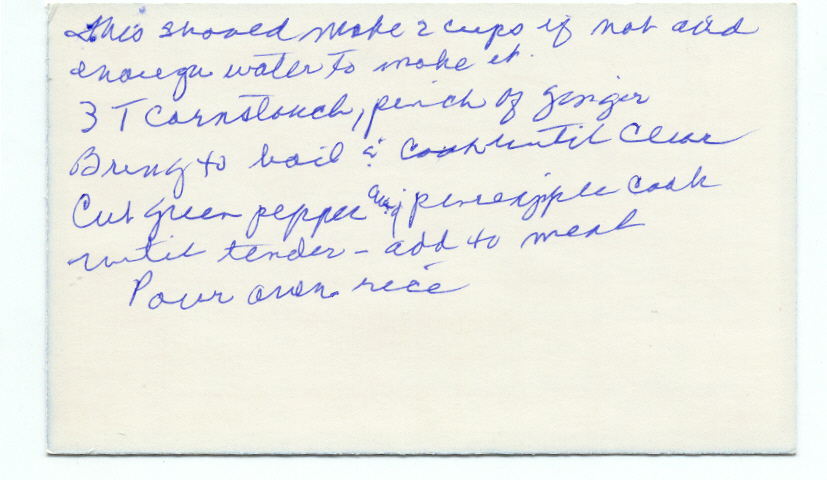 This should make 2 cups if not add
enough water to make it.
3 T Cornstarch, pinch of ginger
Bring to boil & cook until clear
Cut green pepper and pineapple cook
until tender - add to meat
Pour over rice